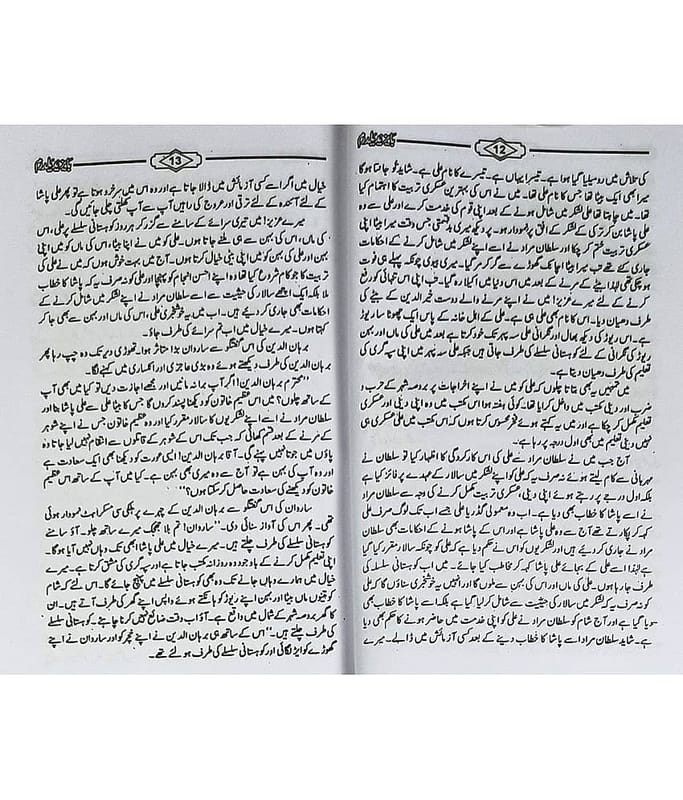 12
کی تلاش میں روسیلیا گیا ہوا ہے۔ تیسرا یہاں ہے۔ تیسرے کا نام علی ہے۔ شاید تو جانتا ہوگا
میرا بھی ایک بیٹا تھا جس کا نام علی تھا۔ میں نے اس کی بہترین عسکری تربیت کا اہتمام کیا
تھا۔ میں چاہتا تھا علی لشکر میں شامل ہونے کے بعد اپنی قوم کی خدمت کرے اور علی سے وہ
علی پاشا بن کر ترکی کے لشکر کے افق پر نمودار ہو۔ پر دیکھ میری بدقسمتی جس وقت میرا بیٹا اپنی
عسکری تربیت ختم کر چکا اور سلطان مراد نے اسے اپنے لشکر میں شامل کرنے کے احکامات
جاری کئے تھے تب میرا بیٹا اچانک گھوڑے سے گر کر مر گیا۔ میری بیوی چونکہ پہلے ہی فوت
ہو چکی تھی لہٰذا بیٹے کے مرنے کے بعد میں اس دنیا میں اکیلا رہ گیا۔ تب اپنی اس تنہائی کو رفع
کرنے کے لئے میرے عزیز! میں نے اپنے مرنے والے دوست خیر الدین کے بیٹے کی
طرف دھیان دیا۔ اس کا نام بھی علی ہی ہے۔ علی کے اہل خانہ کے پاس ایک چھوٹا سا ریوڑ
ہے۔ اس ریوڑ کی دیکھ بھال اور نگرانی علی سہ پہر تک خود کرتا ہے بعد میں علی کی ماں اور بہن
ریوڑ کی نگرانی کے لئے کوہستانی سلسلے کی طرف جاتی ہیں جبکہ علی سہ پہر میں اپنی سپہ گری کی
تعلیم کی طرف دھیان دیتا ہے۔
میں تمہیں یہ بھی بتاتا چلوں کہ علی کو میں نے اپنے اخراجات پر بروصہ شہر کے حرب و
ضرب اور دینی مکتب میں داخل کرایا تھا۔ کوئی ہفتہ ہوا اس مکتب میں وہ اپنی دینی اور عسکری
تعلیم مکمل کر چکا ہے اور میں یہ کہتے ہوئے فخر محسوس کرتا ہوں کہ اس مکتب میں علی عسکری ہی
نہیں دینی تعلیم میں بھی اول درجہ پر رہا ہے۔
آج جب میں نے سلطان مراد سے علی کی اس کارکردگی کا اظہار کیا تو سلطان نے
مہربانی سے کام لیتے ہوئے نہ صرف یہ کہ علی کو اپنے لشکر میں سالار کے عہدے پر فائز کیا ہے
بلکہ اول درجہ پر رہتے ہوئے اپنی دینی، عسکری تربیت مکمل کرنے کی وجہ سے سلطان مراد
نے اسے پاشا کا خطاب بھی دیا ہے۔ اب وہ معمولی گڈریا علی جسے اب تک لوگ صرف علی
کہہ کر پکارتے تھے آج سے وہ علی پاشا ہے اور اس کے پاشا ہونے کے احکامات بھی سلطان
مراد نے جاری کر دیئے ہیں اور لشکریوں کو اس نے حکم دیا ہے کہ علی کو چونکہ سالار مقرر کیا گیا
ہے لہٰذا اسے علی کے بجائے علی پاشا کہہ کر مخاطب کیا جائے۔ میں اب کوہستانی سلسلہ کی
طرف جا رہا ہوں۔ علی کی ماں اور اس کی بہن سے ملوں گا اور انہیں یہ خوشخبری سناؤں گا کہ علی
کو نہ صرف یہ کہ لشکر میں سالار کی حیثیت سے شامل کر لیا گیا ہے بلکہ اسے پاشا کا خطاب بھی
دیا گیا ہے اور آج شام کو سلطان مراد نے علی کو اپنی خدمت میں حاضر ہونے کا حکم بھی دیا
ہے۔ شاید سلطان مراد اسے پاشا کا خطاب دینے کے بعد کسی آزمائش میں ڈالے۔ میرے
13
خیال میں اگر اسے کسی آزمائش میں ڈالا جاتا ہے اور وہ اس میں سرخرو ہوتا ہے تو پھر علی پاشا
کے لئے آئندہ کے لئے ترقی اور عروج کی راہیں آپ سے آپ کھلتی چلی جائیں گی۔
میرے عزیز! میں تیری سرائے کے سامنے سے گزر کر ہر روز کوہستانی سلسلے پر علی، اس
کی ماں، اس کی بہن سے ہی ملنے جاتا ہوں۔ علی کو میں نے اپنا بیٹا، اس کی ماں کو میں اپنی
بہن اور علی کی بہن کو میں اپنی بیٹی خیال کرتا ہوں۔ آج میں بہت خوش ہوں کہ میں نے علی کی
تربیت کا جو کام شروع کیا تھا وہ اپنے احسن انجام کو پہنچا اور علی کو نہ صرف یہ کہ پاشا کا خطاب
ملا بلکہ ایک اچھے سالار کی حیثیت سے اسے سلطان مراد نے اپنے لشکر میں شامل کرنے کے
احکامات بھی جاری کر دیئے ہیں۔ اب میں یہ خوشخبری علی، اس کی ماں اور بہن سے بھی جا کر
کہتا ہوں۔ میرے خیال میں اب تم سرائے کی طرف جاؤ۔
برہان الدین کی اس گفتگو سے ساروان بڑا متاثر ہوا۔ تھوڑی دیر تک وہ چپ رہا پھر
برہان الدین کی طرف دیکھتے ہوئے وہ بڑی عاجزی اور انکساری میں کہنے لگا۔
"محترم برہان الدین! اگر آپ برا نہ مانیں اور مجھے اجازت دیں تو کیا میں بھی آپ
کے ساتھ چلوں؟ میں اس عظیم خاتون کو دیکھنا پسند کروں گا جس کا بیٹا علی سے علی پاشا بنا اور
سلطان مراد نے اسے اپنے لشکریوں کا سالار مقرر کیا اور وہ عظیم خاتون جس نے اپنے شوہر
کے مرنے کے بعد قسم کھائی کہ جب تک اس کے شوہر کے قاتلوں سے انتقام نہیں لیا جاتا وہ
پاؤں میں جوتا نہیں پہنے گی۔ آقا برہان الدین! ایسی عورت کو دیکھنا بھی ایک سعادت ہے
اور وہ آپ کی بہن ہے تو آج سے وہ میری بھی بہن ہے۔ کیا میں آپ کے ساتھ اس عظیم
خاتون کو دیکھنے کی سعادت حاصل کر سکتا ہوں؟"
ساروان کی اس گفتگو سے برہان الدین کے چہرے پر ہلکی سی مسکراہٹ نمودار ہوئی
تھی۔ پھر اس کی آواز سنائی دی۔ "ساروان! تم بلا جھجک میرے ساتھ چلو۔ آؤ سامنے
کوہستانی سلسلے کی طرف چلتے ہیں۔ میرے خیال میں علی پاشا ابھی تک وہاں نہیں آیا ہوگا۔
اپنی تعلیم مکمل کرنے کے باوجود وہ روزانہ مکتب جاتا ہے اور سپہ گری کی مشق کرتا ہے۔ میرے
خیال میں ہمارے وہاں جانے تک وہ بھی کوہستانی سلسلے میں پہنچ جائے گا۔ اس لئے کہ شام
کو تینوں ماں بیٹا اور بہن اپنے ریوڑ کو ہانکتے ہوئے واپس اپنے گھر کی طرف آتے ہیں۔ ان
کا گھر بروصہ شہر کے شمال میں واقع ہے۔ آؤ اب وقت ضائع نہیں کرنا چاہئے۔ کوہستانی سلسلے
کی طرف چلتے ہیں۔" اس کے ساتھ ہی برہان الدین نے اپنے خچر کو اور ساروان نے اپنے
گھوڑے کو ایڑ لگائی اور کوہستانی سلسلے کی طرف ہو لئے تھے۔